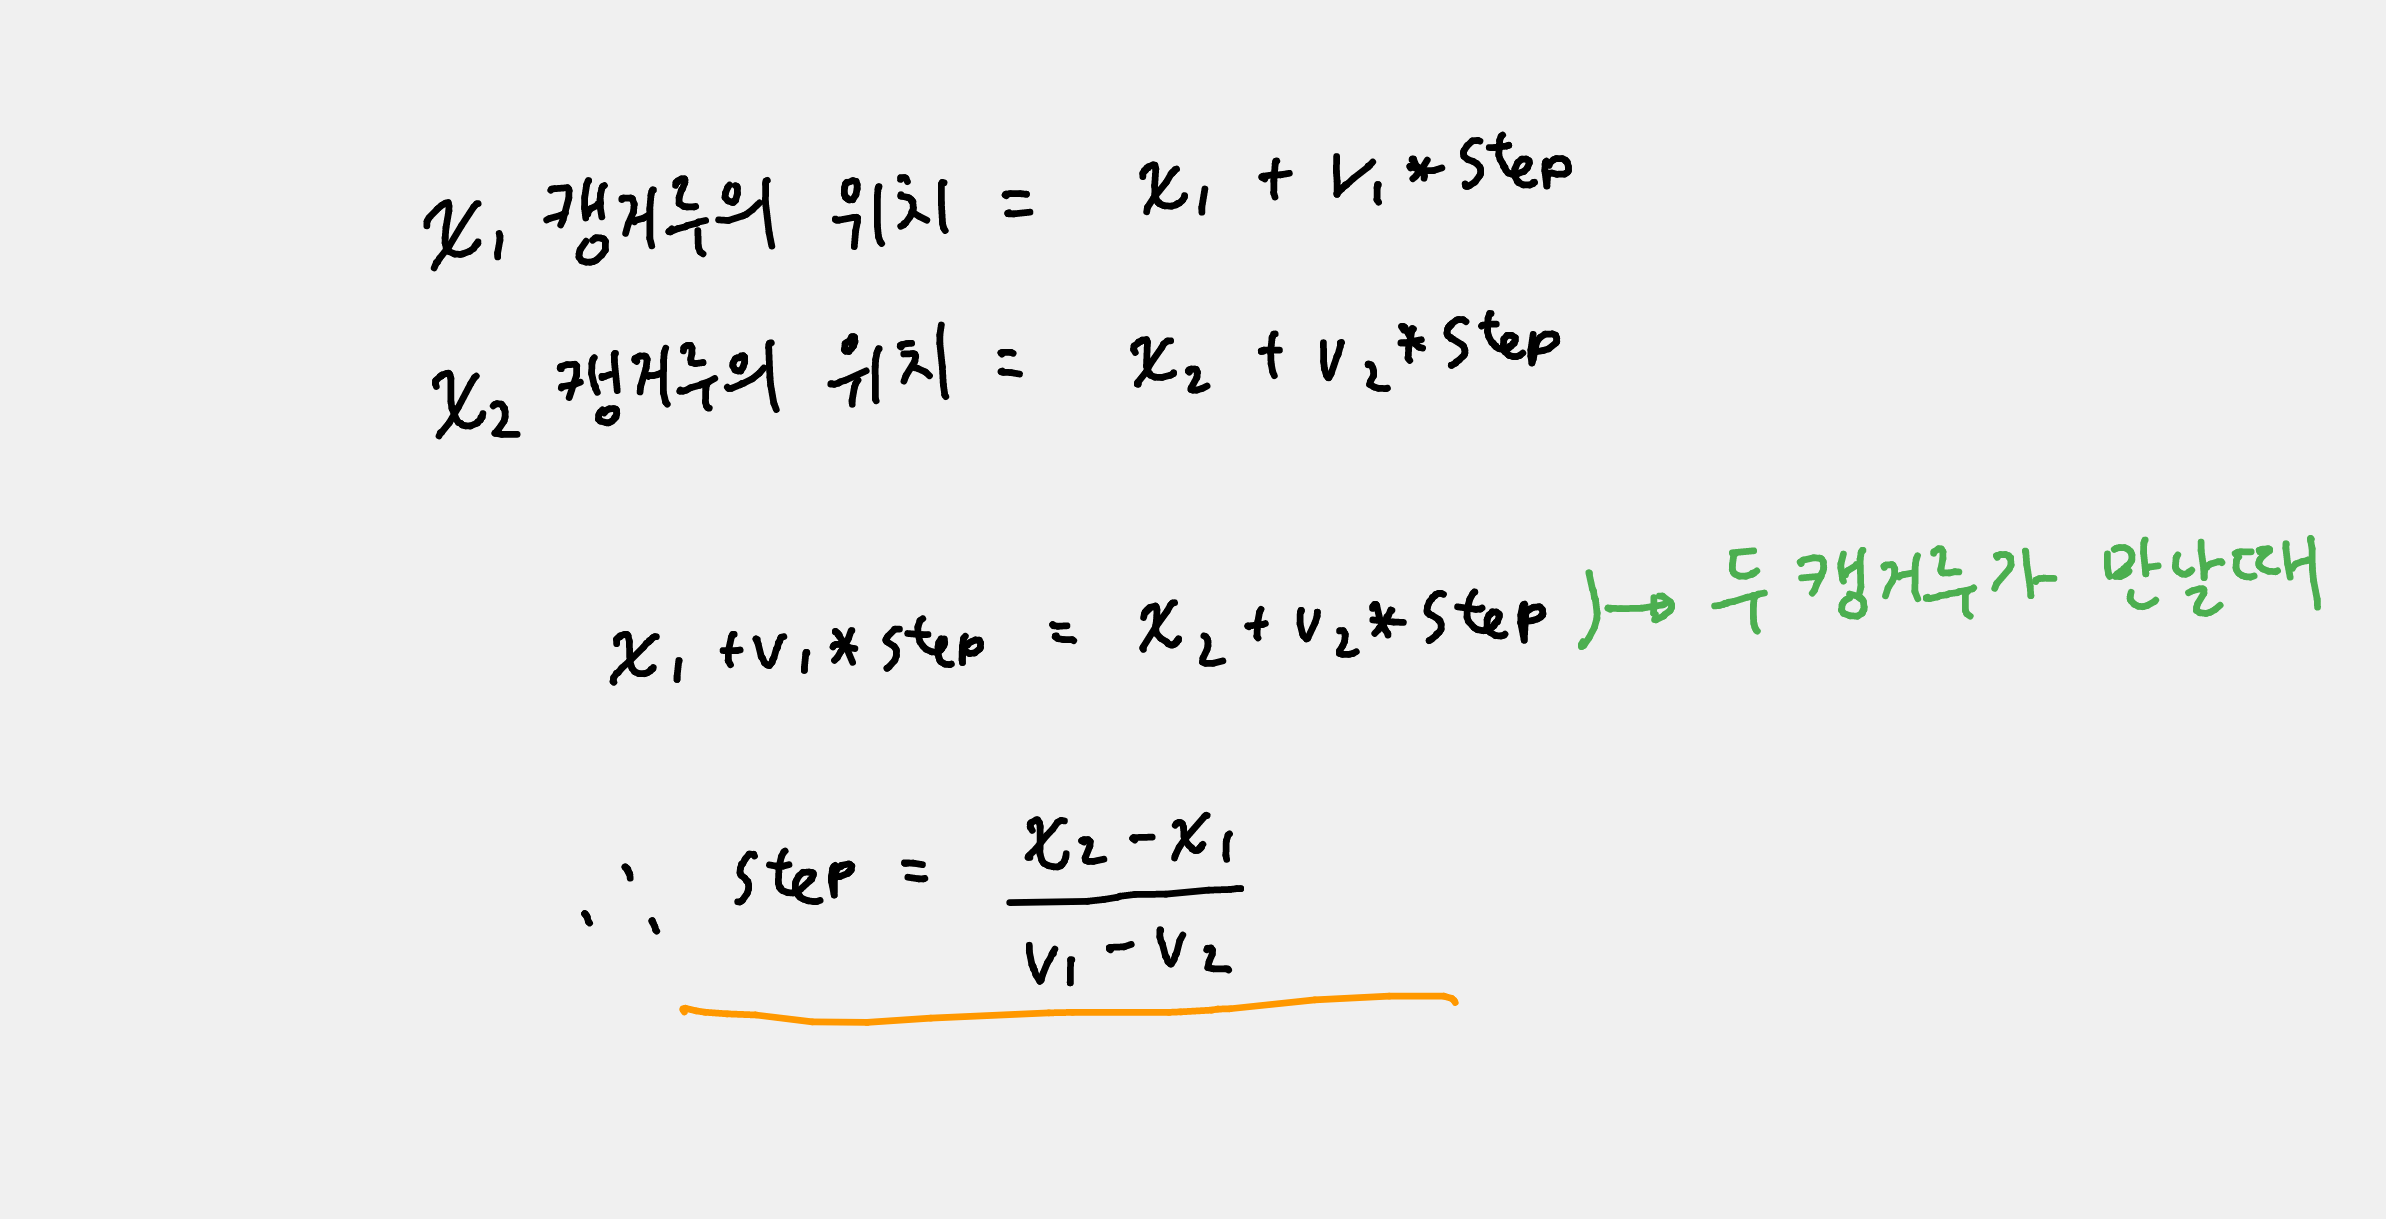 x₁ 캥거루의 위치 = x₁ + v₁ * step
x₂ 캥거루의 위치 = x₂ + v₂ * step
x₁ + v₁ * step = x₂ + v₂ * step → 두 캥거루가 만날때
∴ step = (x₂ - x₁) / (v₁ - v₂)